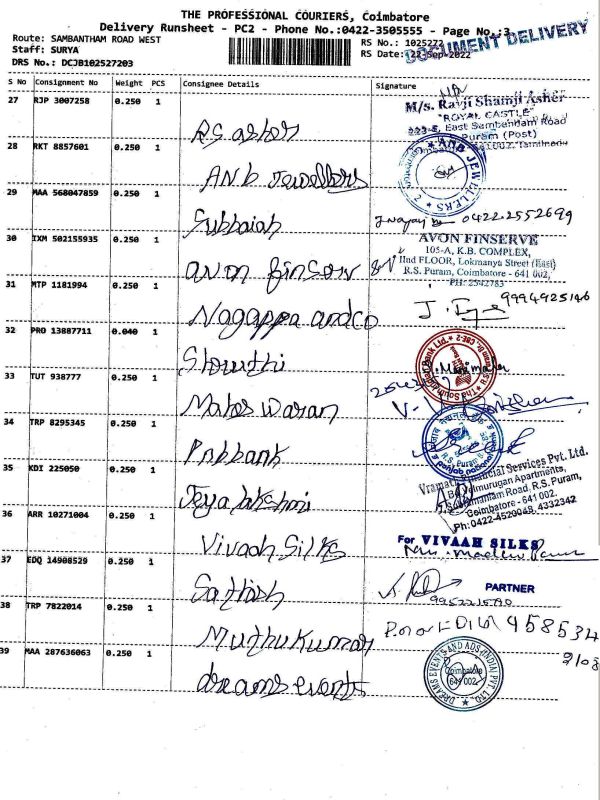 THE PROFESSIONAL COURIERS, Coimbatore
Delivery Runsheet - PC2 - Phone No.:0422-3505555 - Page No.:3
Route: SAMBANTHAM ROAD WEST
RS No.: 1025272
DOCUMENT DELIVERY
Staff: SURYA
RS Date: 22-Sep-2022
DRS No.: DCJB102527203
S No Consignment No Weight PCS Consignee Details Signature
27 RJP 3007258 0.250 1
R.S. asher
M/s. Ravji Shamji Asher
"ROYAL CASTLE"
East Sambandam Road
Puram (Post)
641002. Tamilnadu
28 RKT 8857601 0.250 1
ANb Jewellers
ANB JEWELLERS
29 MAA 568047859 0.250 1
Subbaiah
0422-2552699
30 TXM 502155935 0.250 1
avon finserv
AVON FINSERVE
105-A, K.B. COMPLEX,
IInd FLOOR, Lokmanya Street (East)
R.S. Puram, Coimbatore - 641 002,
PH: 2542783
31 MTP 1181994 0.250 1
Nagappa andco
9994925146
32 PRO 13887711 0.040 1
Shruthi
33 TUT 938777 0.250 1
Maheswaran
34 TRP 8295345 0.250 1
Pnbbank
punjab national
35 KDI 225050 0.250 1
Jeyalakshmi
Financial Services Pvt. Ltd.
Balmurugan Apartments,
Road, R.S. Puram,
Coimbatore - 641 002.
Ph: 0422-4520048, 4332342
36 ARR 10271004 0.250 1
Vivaah Silks
For VIVAAH SILKS
37 EDQ 14908529 0.250 1
Sathish
PARTNER
38 TRP 7822014 0.250 1
Muthukumar
958534
39 MAA 287636063 0.250 1
dreams events
DREAMS EVENTS AND ADS (INDIA) PVT. LTD.
Coimbatore
641 002.